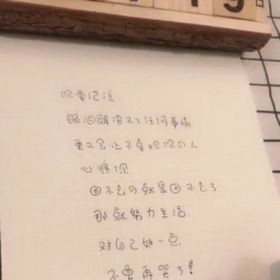 你要记注
眼泪解决不了任何事情
更不会让不喜欢你的人
心疼你
回不去的就是回不去了
那就努力生活
对自己好一点
不要再哭了!